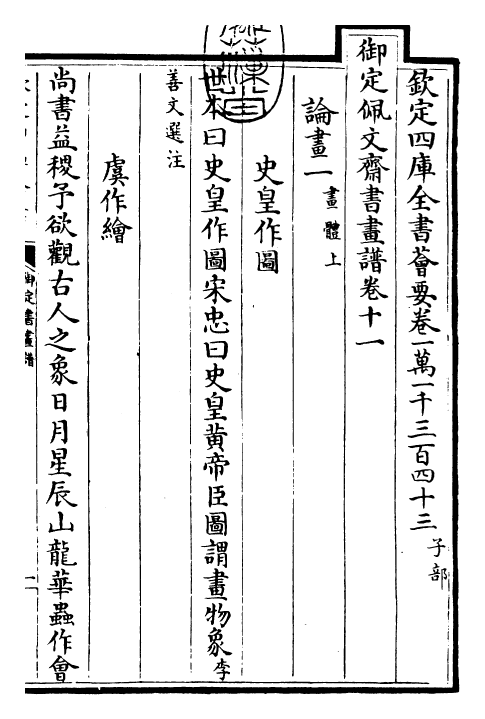 欽定四庫全書薈要卷一萬一千三百四十三 子部
御定佩文齋書畫譜卷十一
論畫一 畫體上
史皇作圖
世本曰史皇作圖宋忠曰史皇黃帝臣圖謂畫物象 李
善文選注
虞作繪
尚書益稷予欲觀古人之象日月星辰山龍華蟲作會
御定書畫譜
一